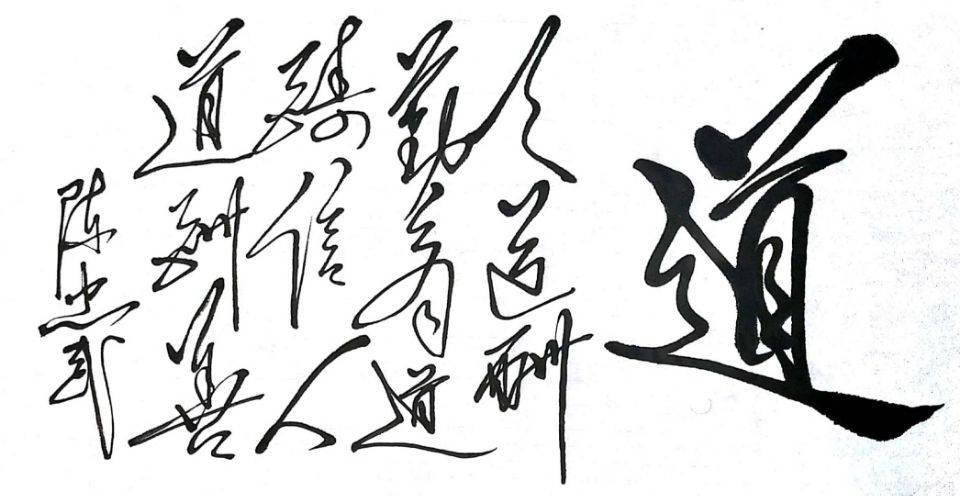 道
天道酬
勤商道
酬信人
道酬善
陈忠武